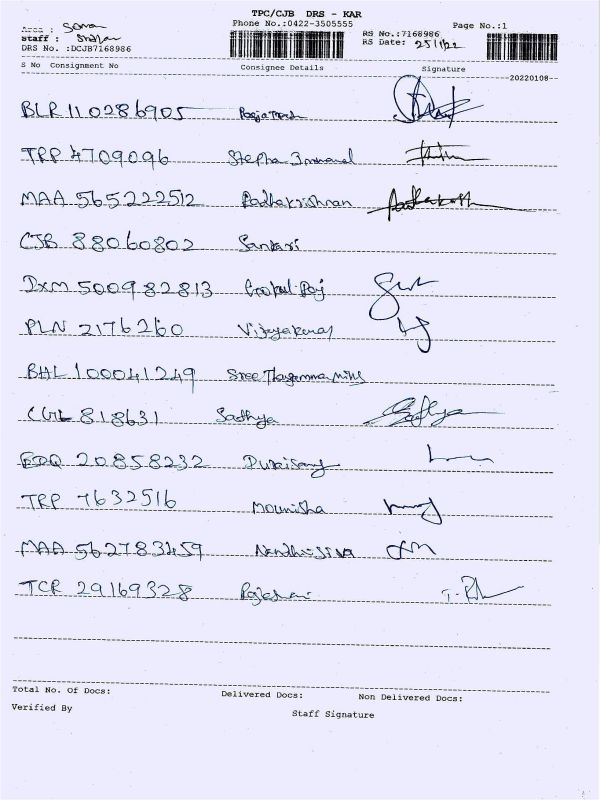 TPC/CJB DRS - KAR
Phone No.:0422-3505555 Page No.:1
Area :
Staff :
RS No.:7168986
DRS No. :DCJB7168986
RS Date: 25/1/22
S No Consignment No Consignee Details Signature
20220108
BLR 110286905
TRP 4709096 Stepha Immanuel
MAA 565222512 Radhakrishnan
CJB 88060802 Sankari
DXM 500982813 Gopal Raj
PLN 2176260 Vijayakumar
BHL 100041249 Sree Thayamma Mills
818631 Sadhya Sadhya
20858232 Duraisamy
TRP 7632516 Mounisha
MAA 562783459 Nandhu Siva
TCR 29169328
Total No. Of Docs: Delivered Docs: Non Delivered Docs:
Verified By Staff Signature